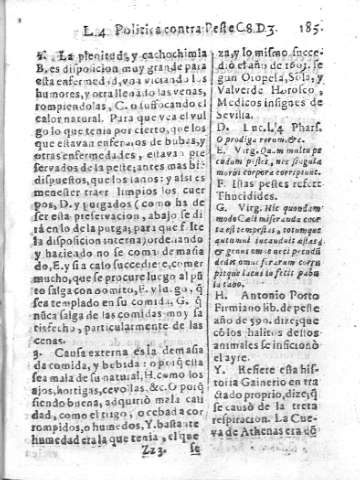 L.4 Politica contra Peste C8.D3. 185.
4. La plenitud, y cachochimia
B. es disposicion muy grande para
esta enfermedad, va viciando los
humores, y otra llenado las venas,
rompiendolas, C. o suffocando el
calor natural. Para que vea el vul
go lo que tenia por cierto, que los
que estavan enfermos de bubas, y
otras enfermedades, estavan pre
servados de la peste, antes mas bi
dispuestos, que los sanos: y assi es
menester traer limpios los cuer
pos, D. y purgados (como ha de
ser esta preservacion, abajo se di
rá en lo de la purga, para que
la disposicion interna) ordenando
y haziendo no se coma demasia
do, E. y si a caso succede el comer
mucho, que se procure luego al pũ
to salga con vomito, F. y luego, q̃
sea templado en su comida, G. q̃
nũca salga de las comidas muy sa
tisfecho, particularmente de las
cenas.
3. Causa externa es la demasia
da comida, y bebida: o porq̃ ella
sea mala de su natural, H. como los
ajos, hortigas, cevollas, &c. O porq̃
siendo buena, adquirió mala cali
dad, como el trigo, o cebada cor
rompidos, o humedos, Y. bastante
humedad era la que tenia, el que
Zz3. se
za, y lo mismo succe
dió el año de 1603. se
gun Oropesa, Sola, y
Valverde Horosco,
Medicos insignes de
Sevilla.
D. Luc.l.4 Phars.
O prodiga rerum.&c.
E. Virg. Quam multæ pe
cudum pestes, nec singula
morbi corpora corripiunt.
F. Estas pestes refere
Thocidides.
G. Virg. Hic quondam
modo Cœli miseranda coor
ta est tempestas, totumque
autumni incanduit æstu,
& genus omne neci pecudũ
dedit omne ferarum corru
pitque lacus infecit pabu
la tabo.
H. Antonio Porto
Firmiano lib. de peste
año de 590. dize; que
cõ los halitos destos
animales se inficionó
el ayre.
Y. Refiere esta his
toria Gainerio en tra
ctado proprio, dize, q̃
se causó de la
respiracion. La Cue
va de Athenas era dõ